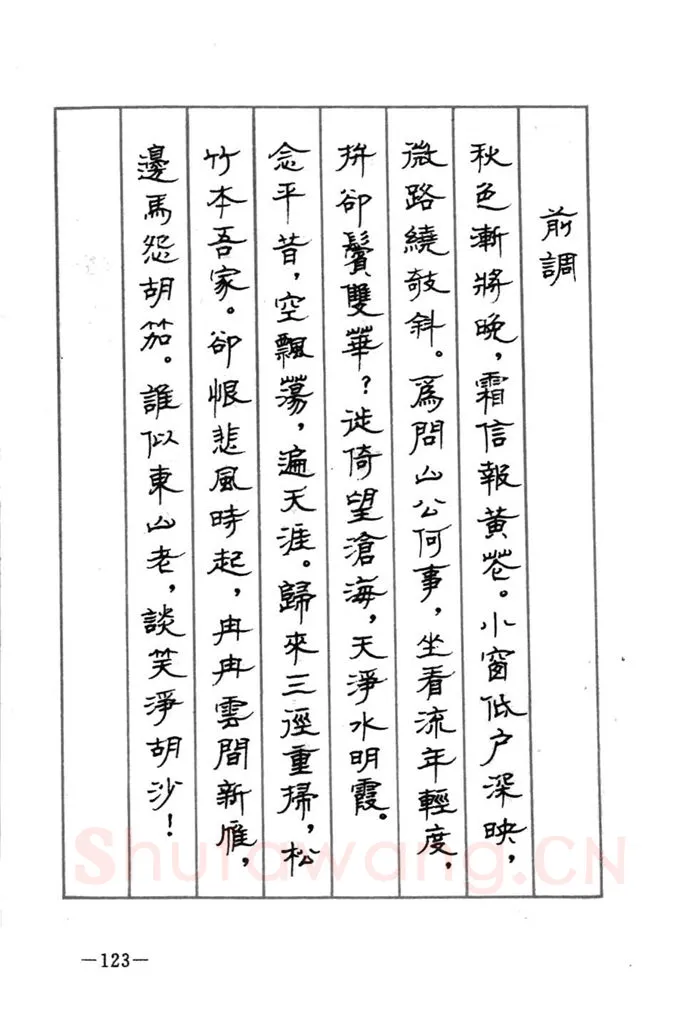 前調
秋色漸將晚，霜信報黃花。小窗低户深映，
微路繞敧斜。爲問山公何事，坐看流年輕度，
拚卻鬢雙華？徙倚望滄海，天淨水明霞。
念平昔，空飄蕩，遍天涯。歸來三徑重掃，松
竹本吾家。卻恨悲風時起，冉冉雲間新雁，
邊馬怨胡笳。誰似東山老，談笑淨胡沙！
Shufawang.CN
—123—